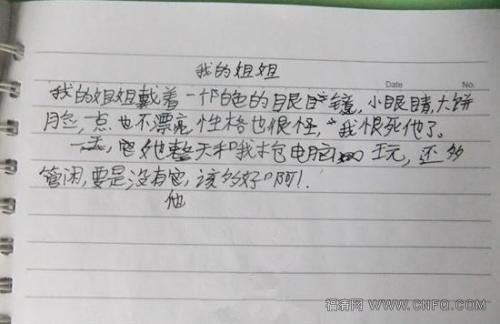 我的姐姐
Date No.
我的姐姐戴着一个白色的眼镜,小眼睛,大饼
脸,点也不漂亮,性格也很怪,我恨死他了。
她整天和我抢电脑玩,还多
管闲,要是没有它,该多好啊!
他
福清网 WWW.CNFQ.COM